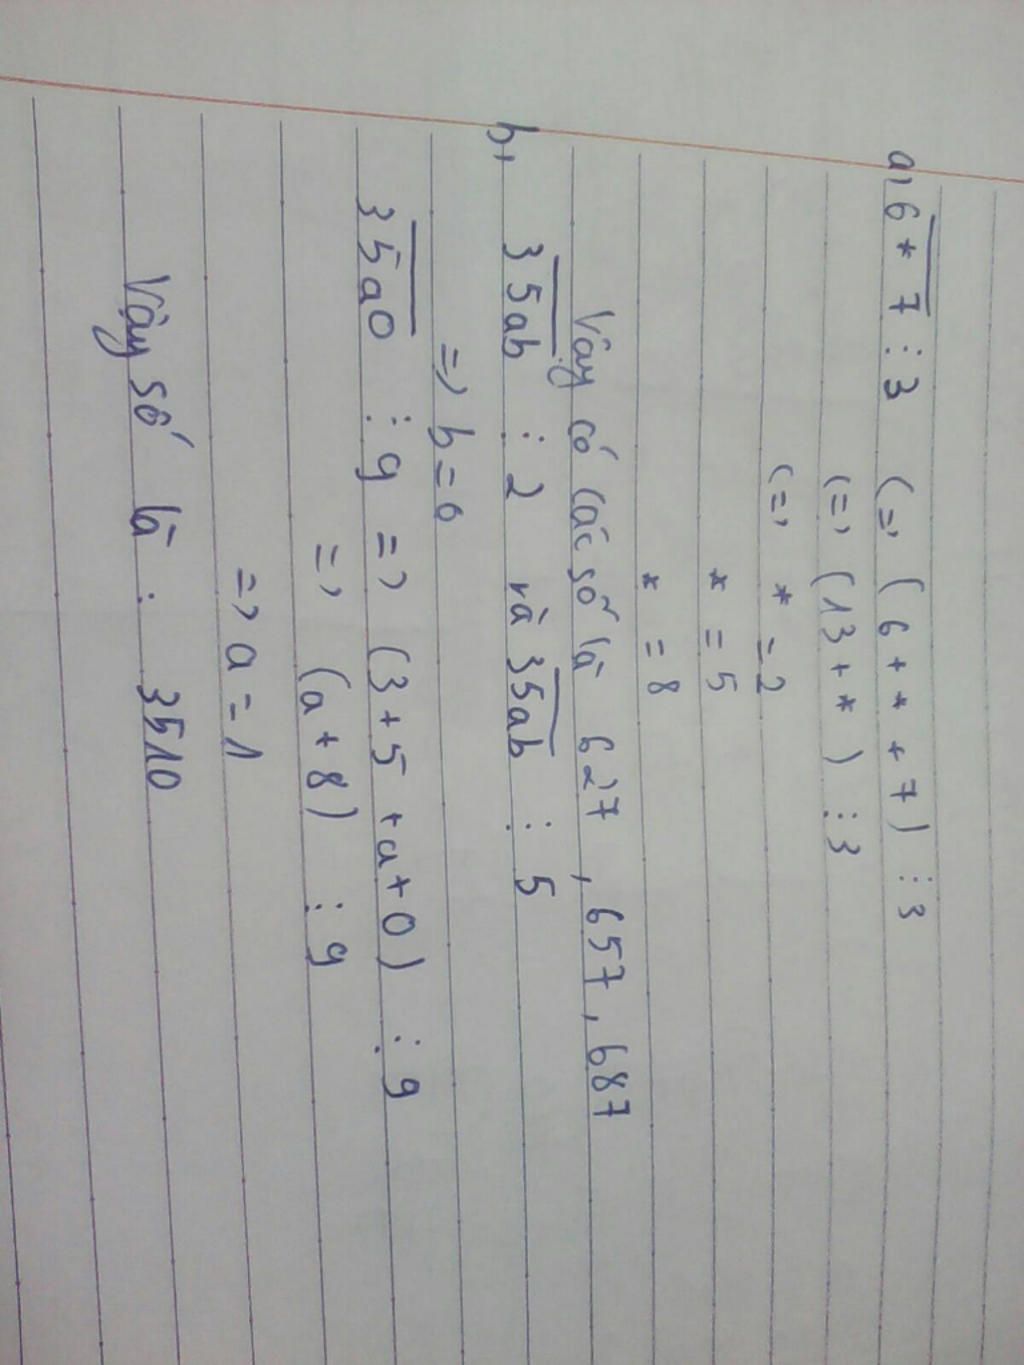 a, 6*7 ⋮ 3 (=) (6 + * + 7) ⋮ 3
(=) (13 + *) ⋮ 3
(=) * = 2
* = 5
* = 8
Vậy có các số là 627, 657, 687
b, 35ab ⋮ 2 và 35ab ⋮ 5
=> b = 0
35a0 ⋮ 9 => (3 + 5 + a + 0) ⋮ 9
=> (a + 8) ⋮ 9
=> a = 1
Vậy số là : 3510